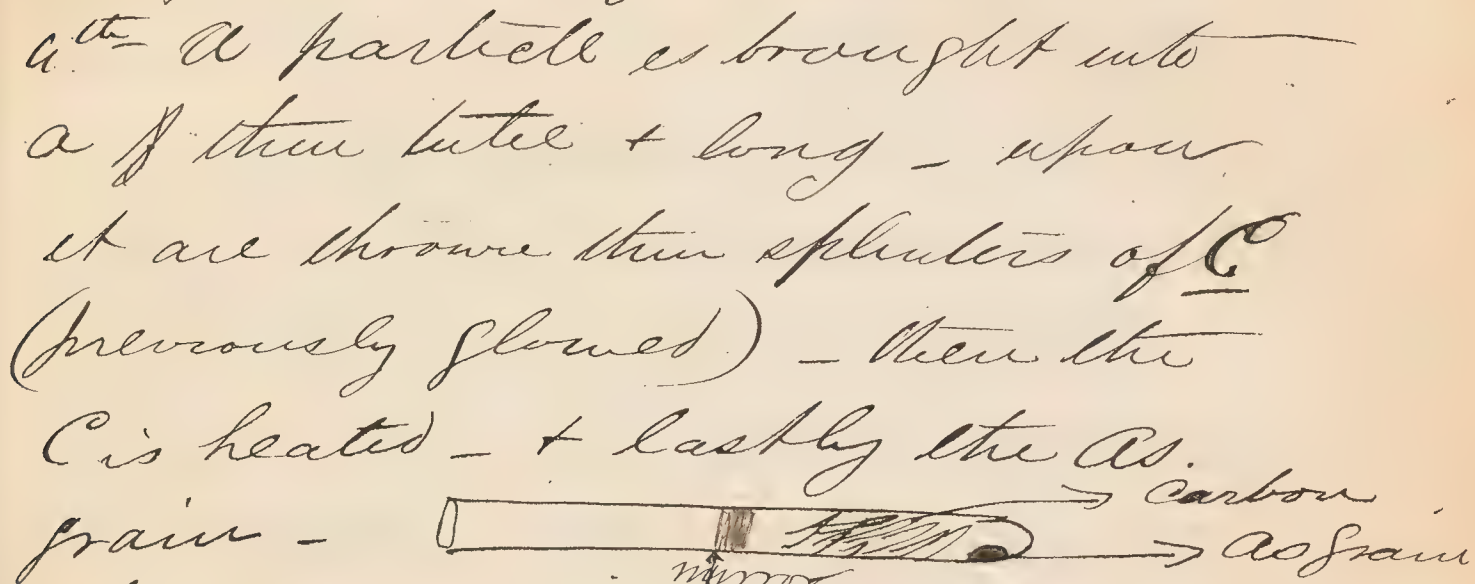 4th A particle is brought into
a thin tube + long - upon
it are thrown thin splinters of C
(previously glowed) - then the
C is heated - + lastly the As.
carbon
grain -
As grain
mirror